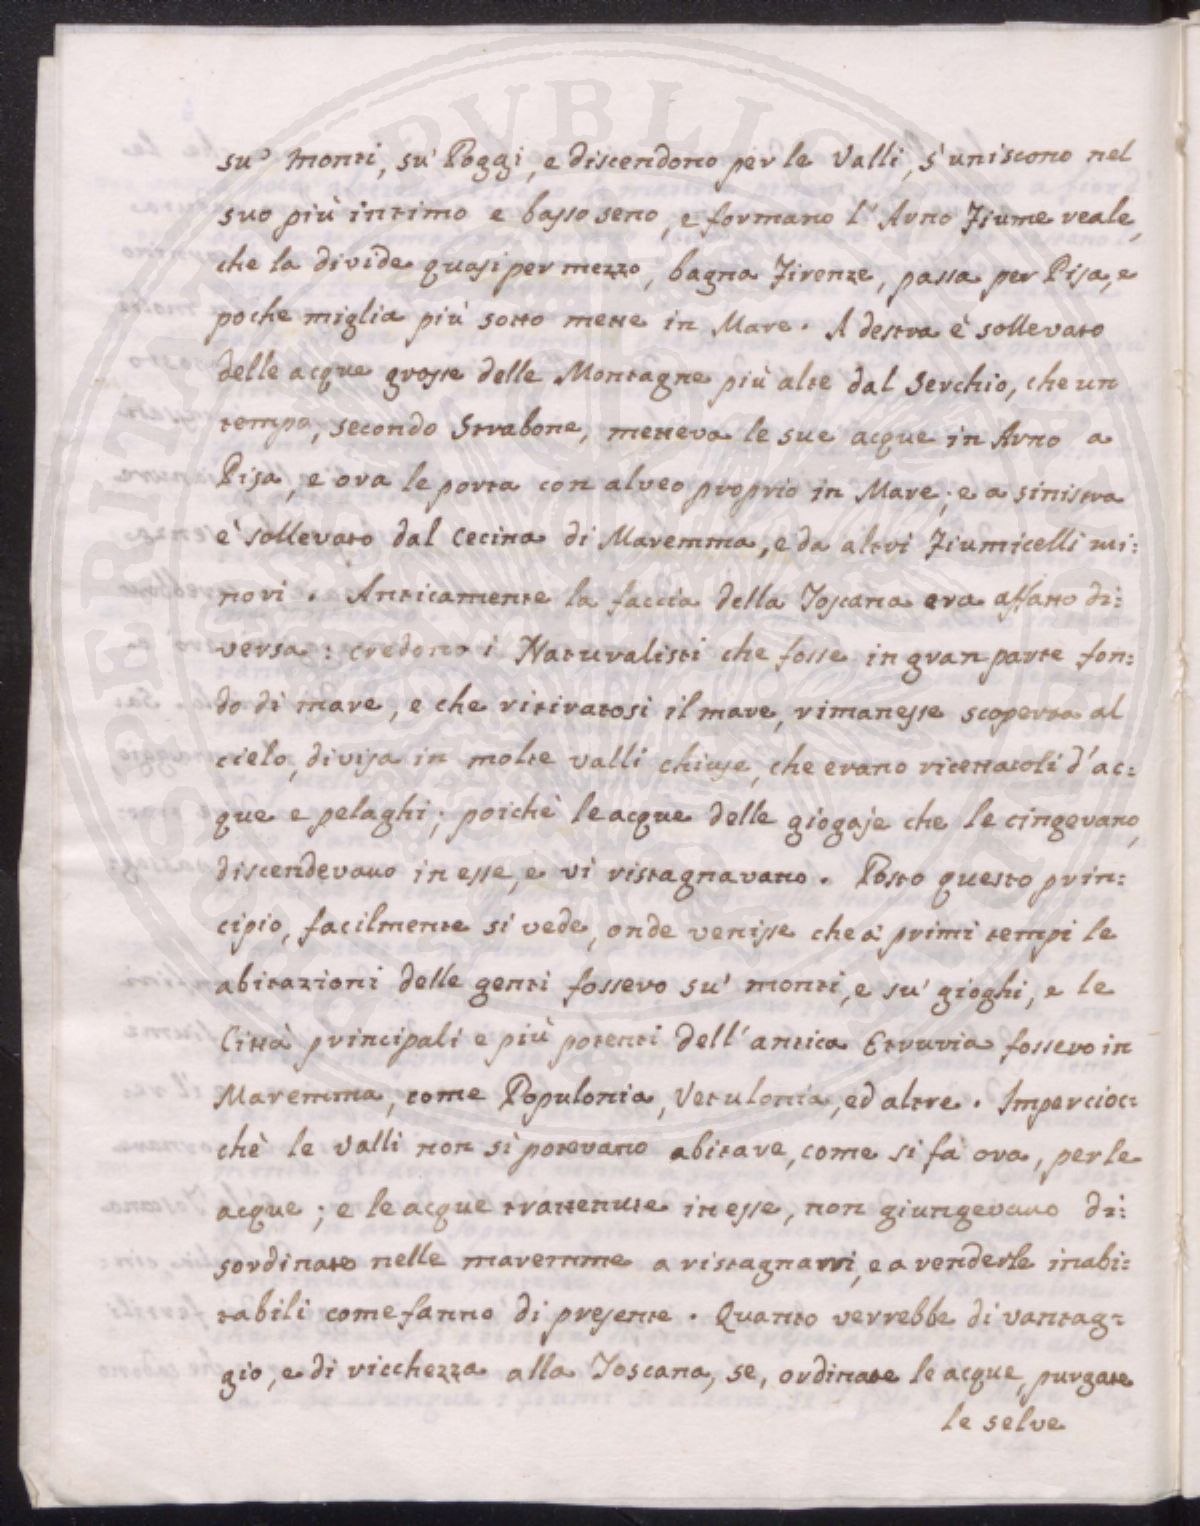 su' monti, su' Poggi, e discendono per le Valli, s'uniscono nel
suo più intimo e basso seno, e formano l'Arno Fiume reale,
che la divide quasi per mezzo, bagna Firenze, passa per Pisa, e
poche miglia più sotto mette in Mare. A destra è sollevato
delle acque grosse delle Montagne più alte dal Serchio, che un
tempo, secondo Strabone, metteva le sue acque in Arno a
Pisa, e ora le porta con alveo proprio in Mare; e a sinistra
è sollevato dal Cecina di Maremma, e da altri Fiumicelli mi:
nori. Anticamente la faccia della Toscana era affatto di:
versa: credono i Naturalisti che fosse in gran parte fon:
do di mare, e che ritiratosi il mare, rimanesse scoperta al
cielo, divisa in molte valli chiuse, che erano ricettacoli d'ac:
que e pelaghi; poichè le acque delle giogaje che le cingevano,
discendevano in esse, e vi ristagnavano. Posto questo prin:
cipio, facilmente si vede, onde venisse che a' primi tempi le
abitazioni delle genti fossero su' monti, e su' gioghi, e le
Città principali e più potenti dell'antica Etruria fossero in
Maremma, come Populonia, Vetulonia, ed altre. Impercioc:
chè le valli non si potevano abitare, come si fà ora, per le
acque; e le acque trattenute in esse, non giungevano di:
sordinate nelle maremme a ristagnarvi, e a renderle inabi:
tabili come fanno di presente. Quanto verrebbe di vantag:
gio, e di ricchezza alla Toscana, se, ordinate le acque, purgate
le selve